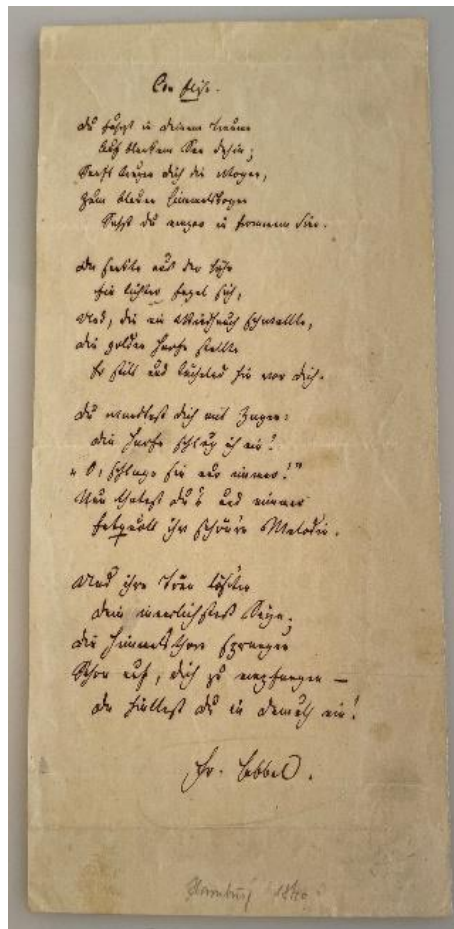 An Elise.
Du fuhrst in deinem Traume
Auf blankem See dahin;
Sanft trugen dich die Wogen,
Zum blauen Himmelsbogen
Sahst du empor in frommem Sinn.
Da senkte aus der Höh
Ein lichter Engel sich,
Und, die ein Windhauch schwellte,
Die goldne Harfe stellte
Er still und lächelnd hin vor dich.
Du wandtest dich mit Zagen:
Die Harfe schlug ich nie!
"O, schlage sie nur immer!"
Nun thatest du's und nimmer
Entquoll ihr schön're Melodie.
Und ihre Töne lös'ten
Dein innerlichstes Seyn;
Die Himmelsthore sprangen
Schon auf, dich zu empfangen —
Da du in Demuth ein!
Fr. Hebbel.
Hamburg 1840